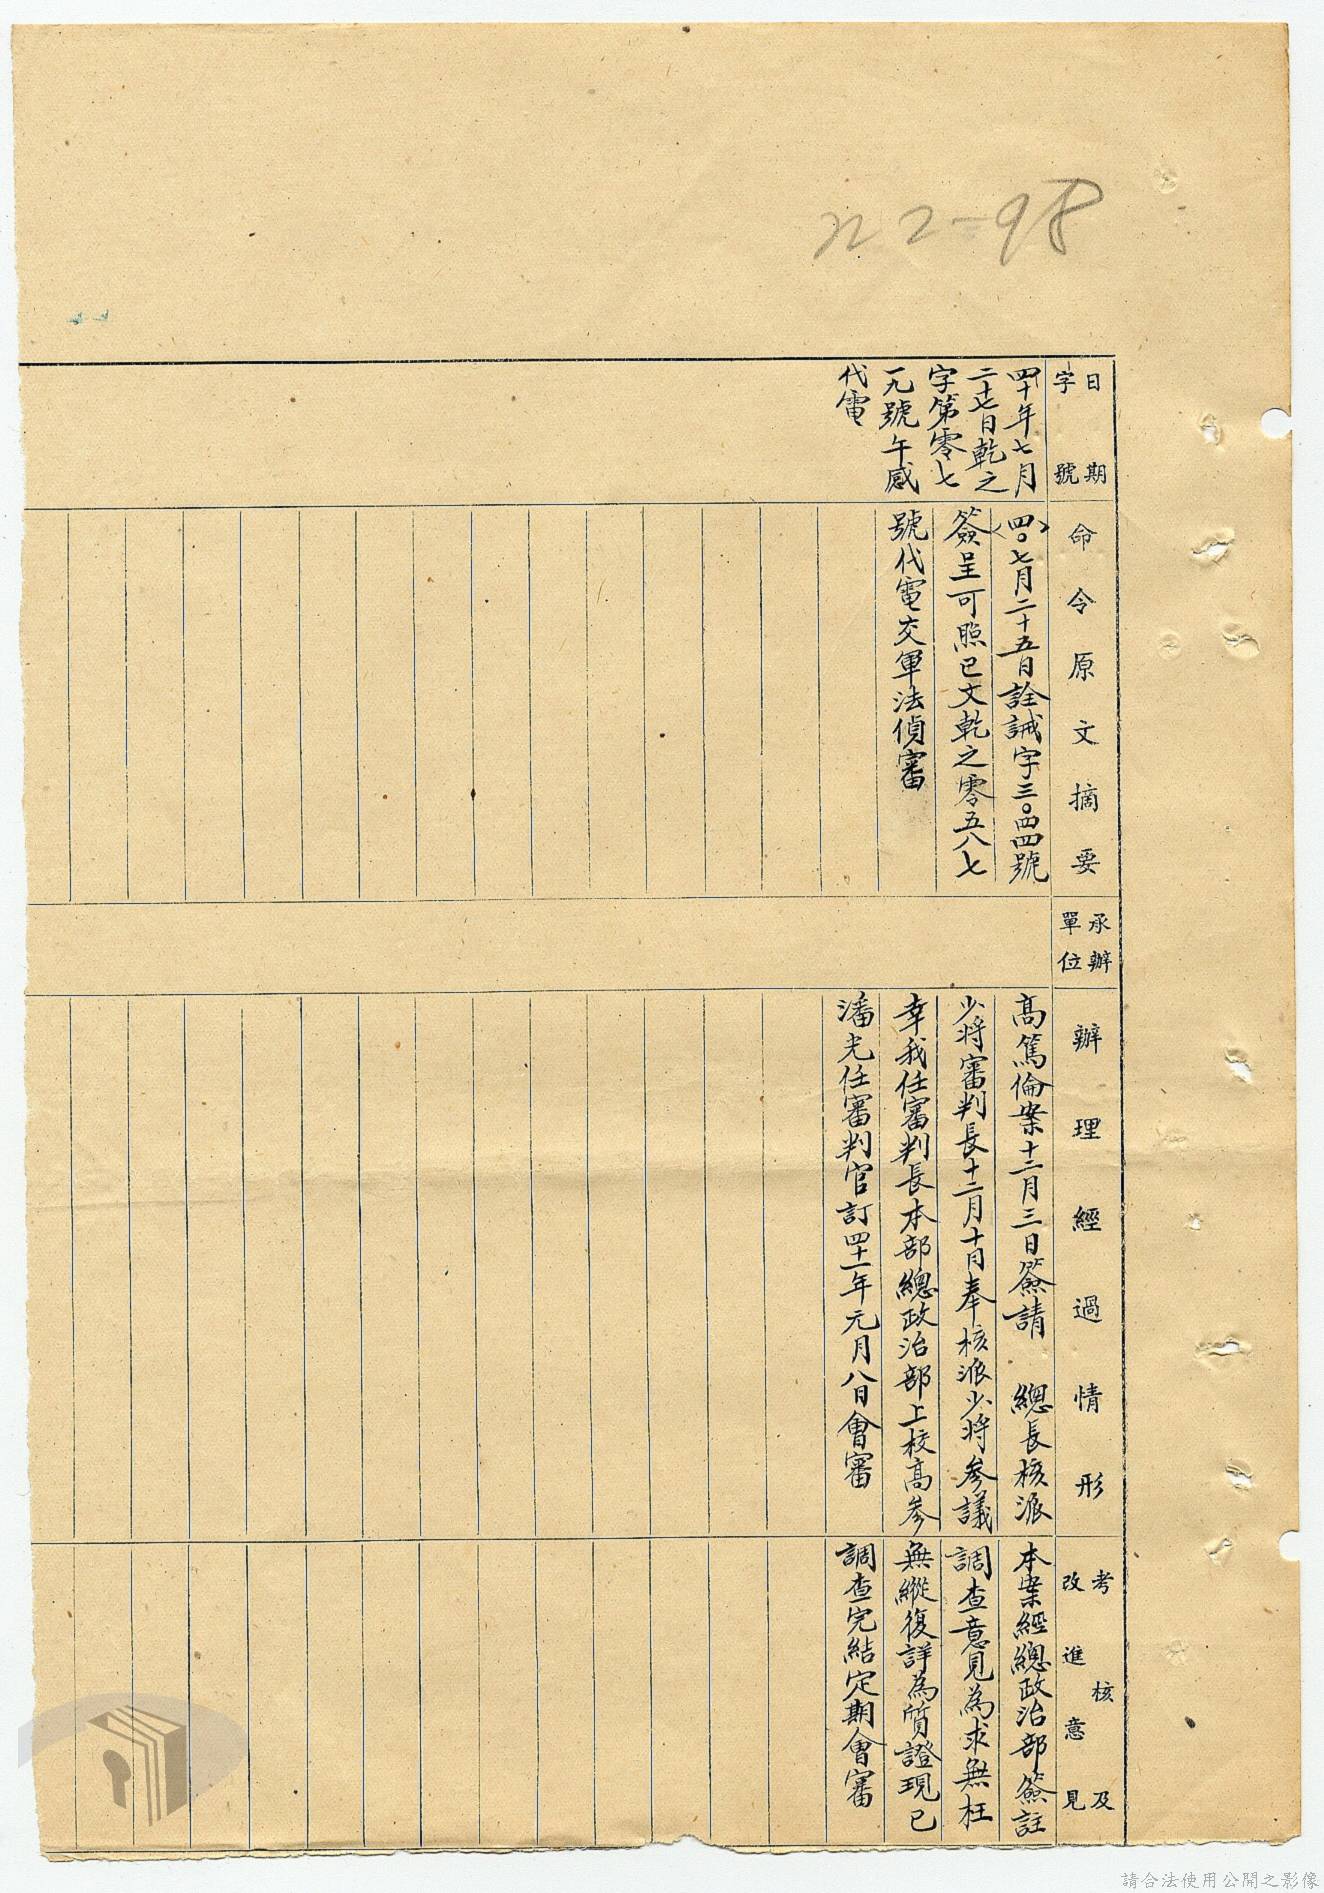 22-98
日期
字號
四十年七月
二十七日乾之
字第零七
一九號午感
代電
命令原文摘要
〈四〇〉七月二十五日詮誡字三〇四四號
簽呈可照已文乾之零五八七
號代電交軍法偵審
承辦
單位
辦理經過情形
高篤倫案十二月三日簽請 總長核派
少將審判長十二月十日奉核派少將參議
幸我任審判長本部總政治部上校高參
潘光任審判官訂四十一年元月八日會審
考核及
改進意見
本案經總政治部簽註
調查意見為求無枉
無縱復詳為質證現已
調查完結定期會審
請合法使用公開之影像